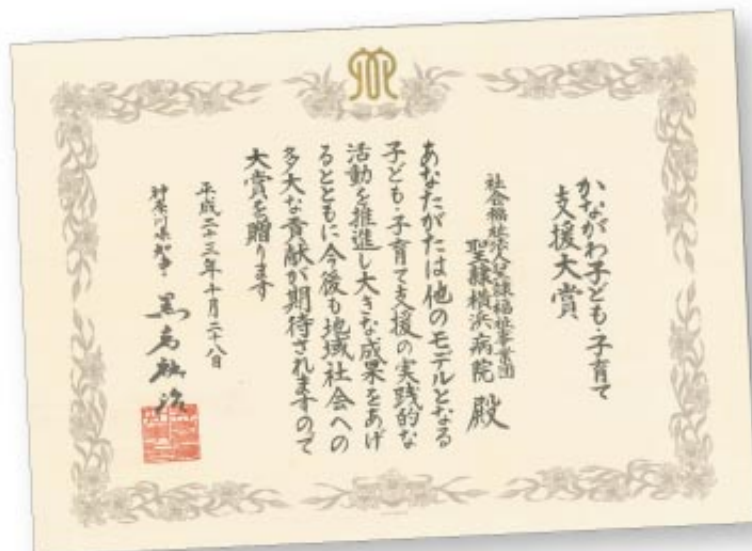 かながわ子ども・子育て
支援大賞
社会福祉法人聖隷福祉事業団
聖隷横浜病院 殿
あなたがたは他のモデルとなる
子ども・子育て支援の実践的な
活動を推進し大きな成果をあげ
るとともに今後も地域社会への
多大な貢献が期待されますので
大賞を贈ります
平成二十三年十月二十八日
神奈川県知事 黒岩祐治